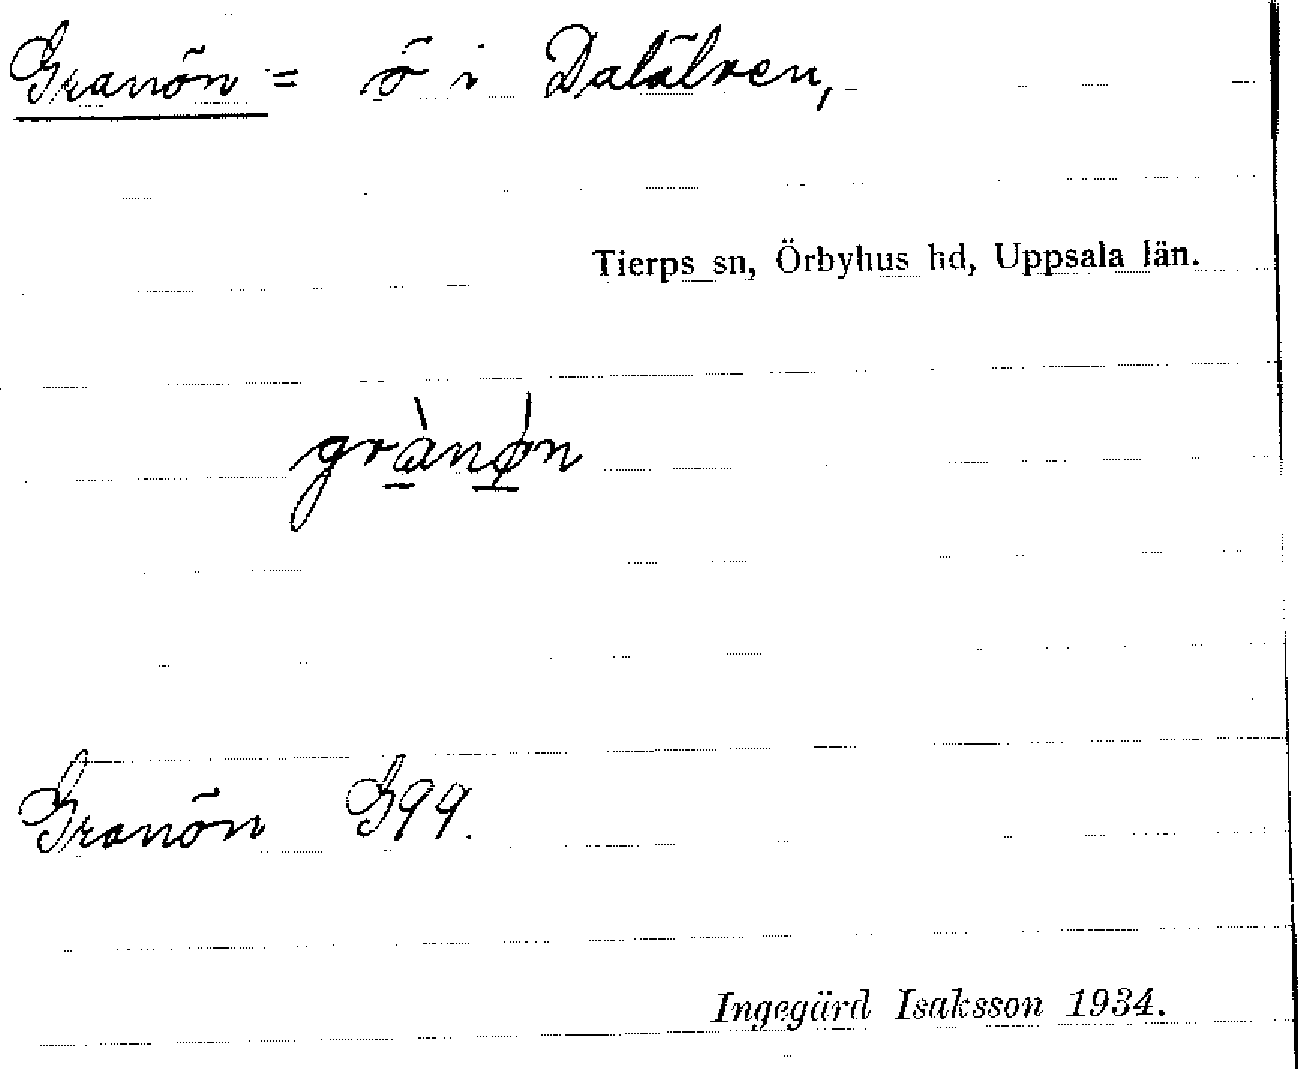 Granön = ö i Dalälven,
Tierps sn, Örbyhus hd, Uppsala län.
grànǿn
Granön G99.
Ingegärd Isaksson 1934.